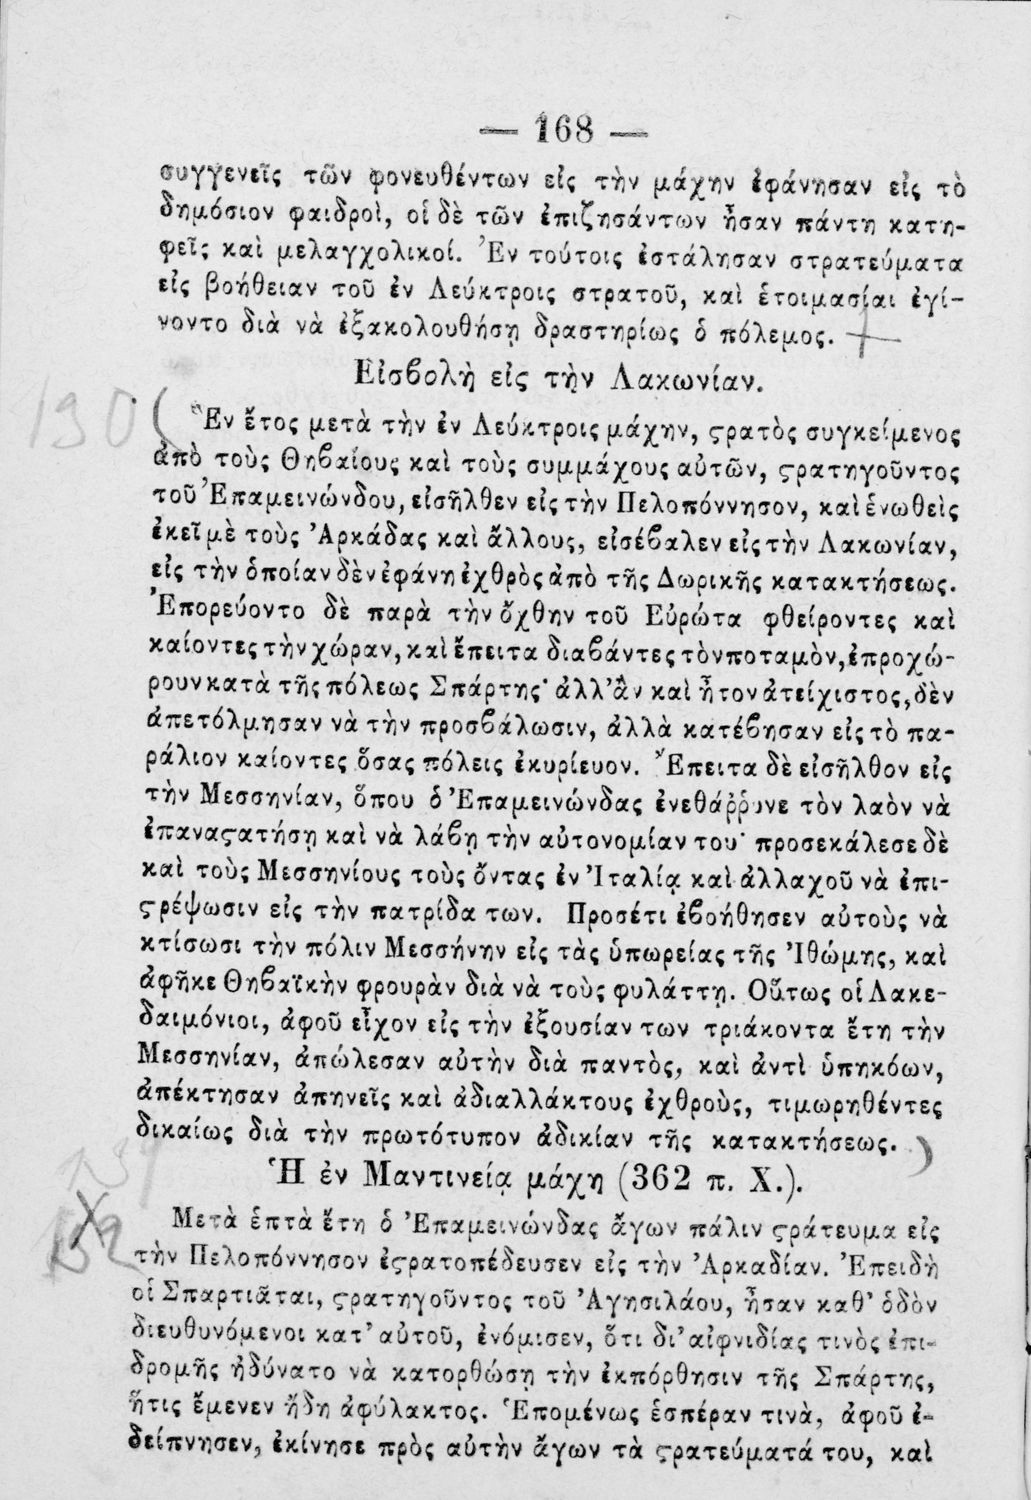 — 168 —
συγγενεῖς τῶν φονευθέντων εἰς τὴν μάχην ἐφάνησαν εἰς τὸ
δημόσιον φαιδροὶ, οἱ δὲ τῶν ἐπιζησάντων ἦσαν πάντη κατη-
φεῖς καὶ μελαγχολικοί. Ἐν τούτοις ἐστάλησαν στρατεύματα
εἰς βοήθειαν τοῦ ἐν Λεύκτροις στρατοῦ, καὶ ἑτοιμασίαι ἐγί-
νοντο διὰ νὰ ἐξακολουθήσῃ δραστηρίως ὁ πόλεμος.
Εἰσβολὴ εἰς τὴν Λακωνίαν.
190
Ἓν ἔτος μετὰ τὴν ἐν Λεύκτροις μάχην, ϛρατὸς συγκείμενος
ἀπὸ τοὺς Θηβαίους καὶ τοὺς συμμάχους αὐτῶν, ϛρατηγοῦντος
τοῦ Ἐπαμεινώνδου, εἰσῆλθεν εἰς τὴν Πελοπόννησον, καὶ ἑνωθεὶς
ἐκεῖ μὲ τοὺς Ἀρκάδας καὶ ἄλλους, εἰσέβαλεν εἰς τὴν Λακωνίαν,
εἰς τὴν ὁποίαν δὲν ἐφάνη ἐχθρὸς ἀπὸ τῆς Δωρικῆς κατακτήσεως.
Ἐπορεύοντο δὲ παρὰ τὴν ὄχθην τοῦ Εὐρώτα φθείροντες καὶ
καίοντες τὴν χώραν, καὶ ἔπειτα διαβάντες τὸν ποταμὸν, ἐπροχώ-
ρουν κατὰ τῆς πόλεως Σπάρτης· ἀλλ' ἂν καὶ ἦτον ἀτείχιστος, δὲν
ἀπετόλμησαν νὰ τὴν προσβάλωσιν, ἀλλὰ κατέβησαν εἰς τὸ πα-
ράλιον καίοντες ὅσας πόλεις ἐκυρίευον. Ἔπειτα δὲ εἰσῆλθον εἰς
τὴν Μεσσηνίαν, ὅπου ὁ Ἐπαμεινώνδας ἐνεθάῤῥυνε τὸν λαὸν νὰ
ἐπαναϛατήσῃ καὶ νὰ λάβῃ τὴν αὐτονομίαν του· προσεκάλεσε δὲ
καὶ τοὺς Μεσσηνίους τοὺς ὄντας ἐν Ἰταλίᾳ καὶ ἀλλαχοῦ νὰ ἐπι-
ϛρέψωσιν εἰς τὴν πατρίδα των. Προσέτι ἐβοήθησεν αὐτοὺς νὰ
κτίσωσι τὴν πόλιν Μεσσήνην εἰς τὰς ὑπωρείας τῆς Ἰθώμης, καὶ
ἀφῆκε Θηβαϊκὴν φρουρὰν διὰ νὰ τοὺς φυλάττῃ. Οὕτως οἱ Λακε-
δαιμόνιοι, ἀφοῦ εἶχον εἰς τὴν ἐξουσίαν των τριάκοντα ἔτη τὴν
Μεσσηνίαν, ἀπώλεσαν αὐτὴν διὰ παντὸς, καὶ ἀντὶ ὑπηκόων,
ἀπέκτησαν ἀπηνεῖς καὶ ἀδιαλλάκτους ἐχθροὺς, τιμωρηθέντες
δικαίως διὰ τὴν πρωτότυπον ἀδικίαν τῆς κατακτήσεως.
Ἡ ἐν Μαντινείᾳ μάχη (362 π. Χ.).
Μετὰ ἑπτὰ ἔτη ὁ Ἐπαμεινώνδας ἄγων πάλιν ϛράτευμα εἰς
τὴν Πελοπόννησον ἐϛρατοπέδευσεν εἰς τὴν Ἀρκαδίαν. Ἐπειδὴ
οἱ Σπαρτιᾶται, ϛρατηγοῦντος τοῦ Ἀγησιλάου, ἦσαν καθ' ὁδὸν
διευθυνόμενοι κατ' αὐτοῦ, ἐνόμισεν, ὅτι δι' αἰφνιδίας τινὸς ἐπι-
δρομῆς ἠδύνατο νὰ κατορθώσῃ τὴν ἐκπόρθησιν τῆς Σπάρτης,
ἥτις ἔμενεν ἤδη ἀφύλακτος. Ἑπομένως ἑσπέραν τινὰ, ἀφοῦ ἐ-
δείπνησεν, ἐκίνησε πρὸς αὐτὴν ἄγων τὰ ϛρατεύματά του, καὶ